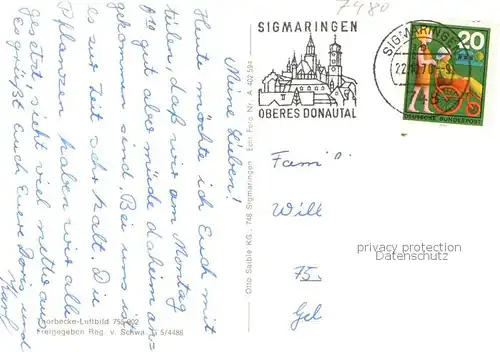 Meine Lieben!
Heute möchte ich Euch mit
teilen, daß wir am Montag
gut aber müde daheim an=
gekommen sind. Bei uns ist
es zur Zeit sehr kalt. Die
Pflanzen haben wir alle
gesetzt sieht viel netter aus
Es grüßt Euch Eure Doris und
Karl
Thorbecke-Luftbild 755 902
Freigegeben Reg. v. Schwa. G 5/4486
Otto Saible KG., 748 Sigmaringen Echt Foto Nr. A 402 594
7480
SIGMARINGEN
OBERES DONAUTAL
SIGMARINGEN
20
DEUTSCHE BUNDESPOST
Fam
Will
privacy protection
watermark
75
Gel